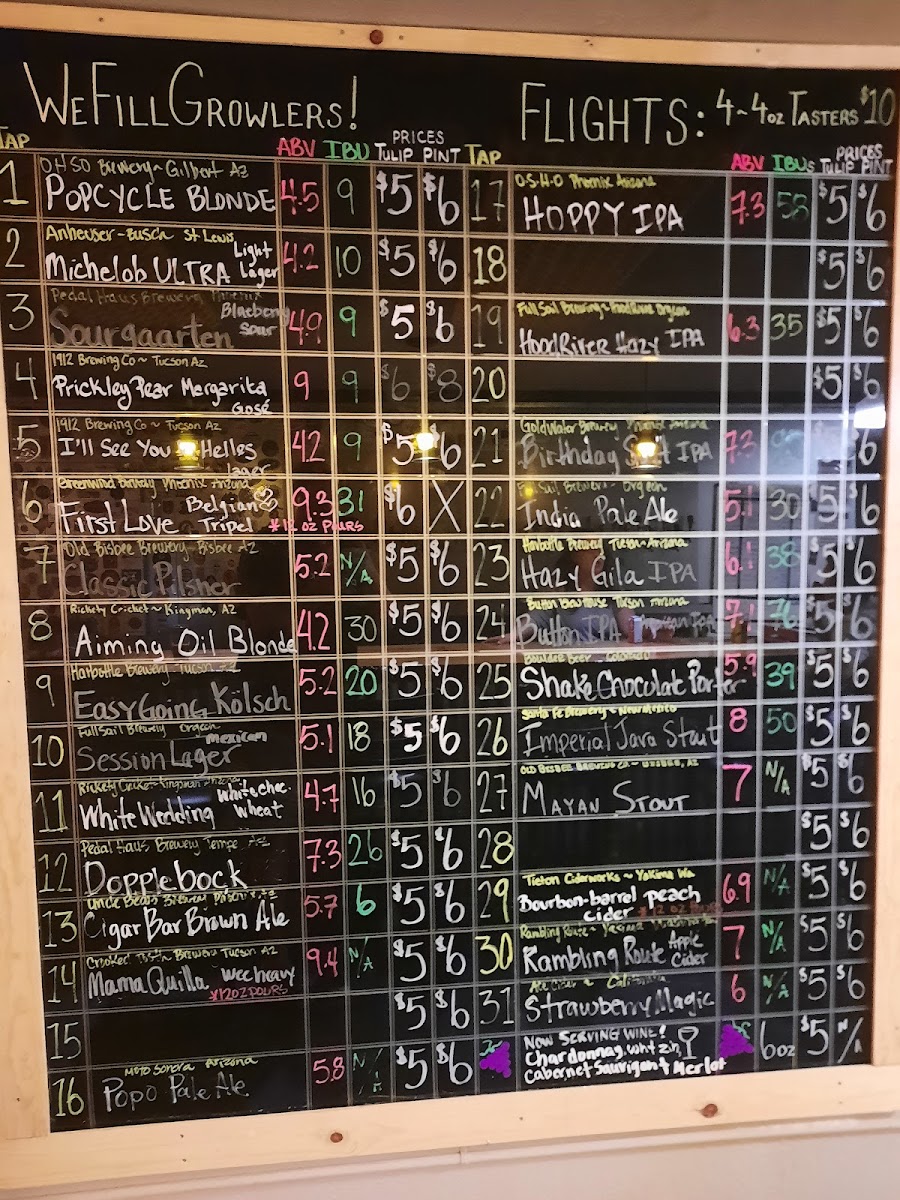 WeFillGrowlers!
FLIGHTS: 4~4oz TASTERS $10
TAP ABV IBU PRICES TULIP PINT
TAP ABV IBUs PRICES TULIP PINT
1 OHSO Brewery~Gilbert Az
POPCYCLE BLONDE 4.5 9 $5 $6
2 Anheuser-Busch St Lewis
Michelob ULTRA Light Lager 4.2 10 $5 $6
3 Pedal Haus Brewery Phoenix
Sourgaarten Blueberry Sour 4.9 9 $5 $6
4 1912 Brewing Co~Tucson Az
Prickley Pear Margarita Gosé 9 9 $6 $8
5 1912 Brewing Co~Tucson Az
I'll See You Helles lager 4.2 9 $5 $6
6 Brewery Phoenix Arizona
First Love Belgian Tripel 9.3 31 $6 X
*12 oz POURS
7 Old Bisbee Brewery-Bisbee AZ
Classic Pilsner 5.2 N/A $5 $6
8 Rickety Cricket~Kingman, AZ
Aiming Oil Blonde 4.2 30 $5 $6
9 Harbottle Brewery Tucson AZ
EasyGoing Kölsch 5.2 20 $5 $6
10 Full Sail Brewery Oregon
Session Lager mexican 5.1 18 $5 $6
11 Rickety Cricket Kingman Arizona
White Wedding White choc. Wheat 4.7 16 $5 $6
12 Pedal Haus Brewery Tempe AZ
Dopplebock 7.3 26 $5 $6
13 Uncle Bears Brewery
Cigar Bar Brown Ale 5.7 6 $5 $6
14 Crooked Tooth Brewery Tucson AZ
Mama Quilla Wee heavy 9.4 N/A $5 $6
*12oz POURS
15 $5 $6
16 Moto Sonora Arizona
Popo Pale Ale 5.8 N/A $5 $6
17 O.S.H.O Phoenix Arizona
HOPPY IPA 7.3 58 $5 $6
18 $5 $6
19 Full Sail Brewing~Hood River Oregon
Hood River Hazy IPA 6.3 35 $5 $6
20 $5 $6
21 Goldwater Brewery Phoenix Arizona
Birthday IPA 7.3 $6
22 Full Sail Brewery~Oregon
India Pale Ale 5.1 30 $5 $6
23 Harbottle Brewery Tucson~Arizona
Hazy Gila IPA 6.1 38 $5 $6
24 Button Brew House Tucson Arizona
Button IPA American IPA 7.1 76 $5 $6
25 Boulder Beer~Colorado
Shake Chocolate Porter 5.9 39 $5 $6
26 Santa Fe Brewery~New Mexico
Imperial Java Stout 8 50 $5 $6
27 OLD BISBEE BREWING CO~BISBEE, AZ
MAYAN STOUT 7 N/A $5 $6
28 $5 $6
29 Tieton Ciderworks~Yakima Wa
Bourbon-barrel peach cider 6.9 N/A $5 $6
*12 oz
30 Rambling Route~Yakima
Rambling Route Apple Cider 7 N/A $5 $6
31 Ace Cider~California
Strawberry Magic 6 N/A $5 $6
NOW SERVING WINE!
Chardonnay, wht zin,
Cabernet Sauvignon & Merlot 6oz $5 N/A